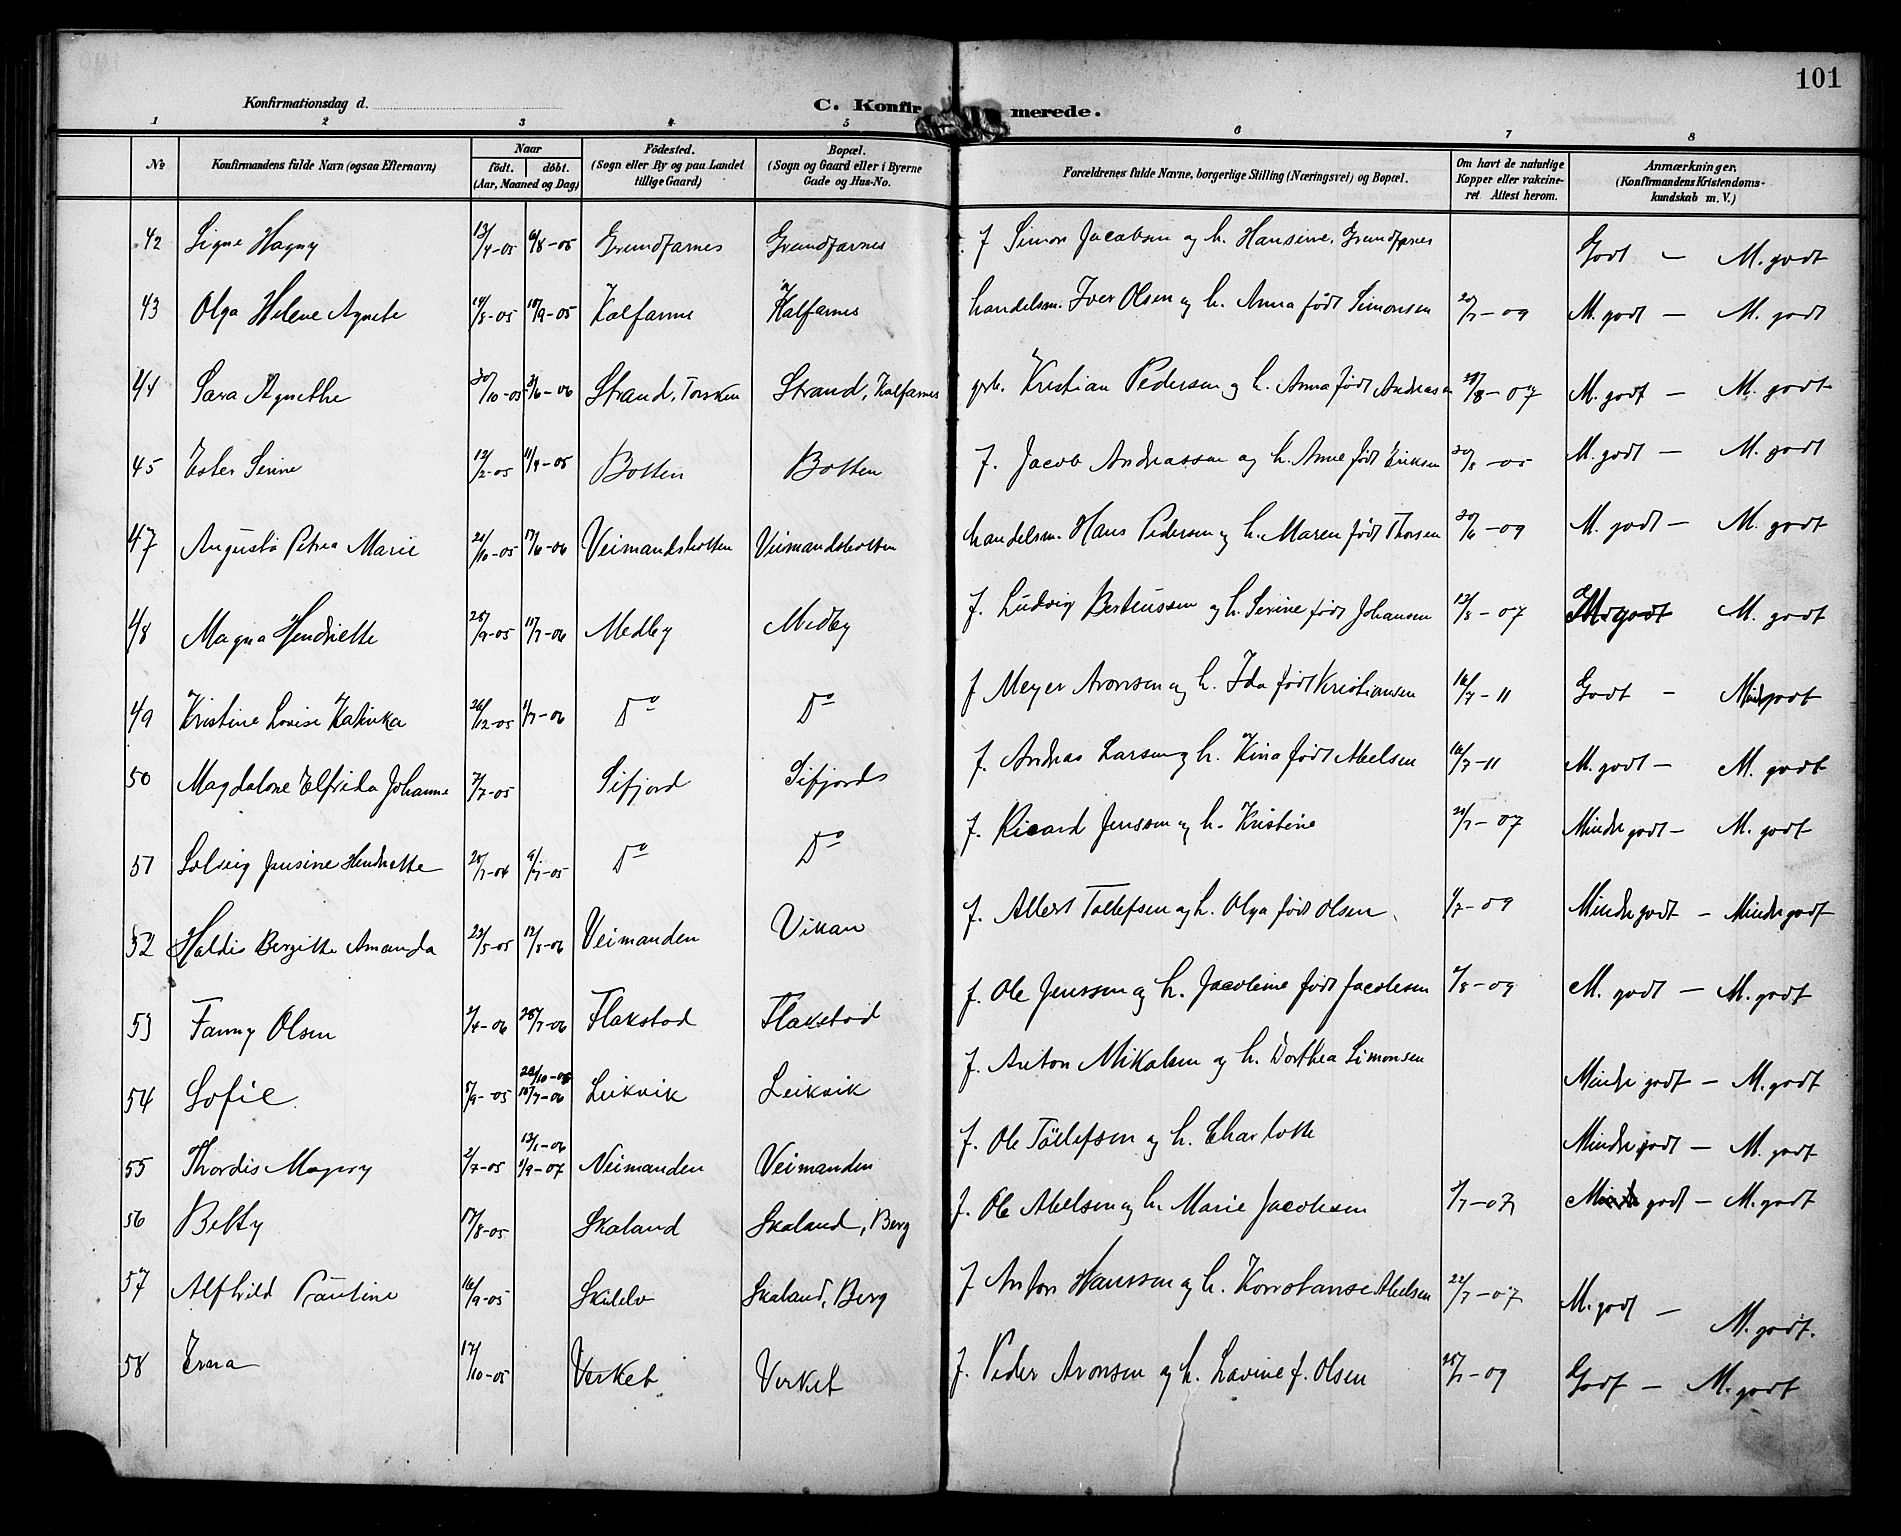 101
Konfirmationsdag d.
C. Konfirmerede.
1 2 3 4 5 6 7 8
No Konfirmandens fulde Navn (ogsaa Efternavn) Naar født. døbt. (Aar, Maaned og Dag) Fødested. (Sogn eller By og paa Landet tillige Gaard) Bopæl. (Sogn og Gaard eller i Byerne Gade og Hus-No. Forældrenes fulde Navne, borgerlige Stilling (Næringsvei) og Bopæl. Om havt de naturlige Kopper eller vakcineret Attest herom. Anmærkninger, (Konfirmandens Kristendomskundskab m. V.)
42 Signe Hagny 13/4-05 6/8-05 Grundfarnes Grundfarnes f Simon Jacobsen og h. Hansine, Grundfarnes Godt — M. godt
43 Olga Helene Agnete 14/8-05 10/9-05 Kalfarnes Kalfarnes handelsm. Iver Olsen og h. Anna født Simonsen 20/7-09 M. godt — M. godt
44 Sara Agnethe 30/10-05 3/6-06 Strand, Torsken Strand, Kalfarnes grb. Kristian Pedersen og h. Anna født Andreasen 28/8-07 M. godt — M. godt
45 Ester Serine 12/2-05 11/4-05 Botten Botten f. Jacob Andreassen og h. Anne født Eriksen 30/8-05 M. godt — M. godt
47 Augusta Petrea Marie 21/10-05 17/6-06 Veimandsbotten Veimandsbotten handelsm. Hans Pedersen og h. Maren født Thorsen 30/6-09 M. godt — M. godt
48 Magna Hendriette 25/9-05 15/7-06 Medby Medby f. Ludvig Berteussen og h. Serine født Johansen 12/8-07 M. godt M. godt
49 Kristine Lovise Katinka 26/12-05 1/7-06 Do Do f Meyer Aronsen og h. Ida født Kristiansen 16/7-11 Godt — Mindre godt
50 Magdalone Elfrida Johanne 7/7-05 Sifjord Sifjord f. Andreas Larsen og h. Kina født Abelsen 16/7-11 M. godt — M. godt
51 Solveig Jensine Hendriette 25/7-04 9/7-05 Do Do f. Ricard Jenssen og h. Kristine 21/7-07 Mindre godt — M. godt
52 Haldis Bergitte Amanda 23/5-05 12/8-06 Veimanden Vikan f. Albert Tollefsen og h. Olga født Olsen 1/7-09 Mindre godt — Mindre godt
53 Fanny Olsen 2/4-06 25/7-06 Flakstad Flakstad f. Ole Jenssen og h. Jacobine født Jacobsen 2/8-09 M. godt — M. godt
54 Sofie 8/9-05 22/10-05 15/7-06 Leikvik Leikvik f. Anton Mikalsen og h. Dorthea Simonsen Mindre godt — M. godt
55 Thordis Magny 2/7-05 13/1-06 1/9-07 Veimanden Veimanden f. Ole Tollefsen og h. Charlotte Mindre godt — M. godt
56 Betty 17/8-05 Skaland Skaland, Berg f. Ole Abelsen og h. Marie Jacobsen 2/7-07 Mindre godt — M. godt
57 Alfhild Pauline 16/9-05 Skaland, Berg f Anton Hanssen og h. Konstanse Abelsen 22/7-07 M. godt — M. godt.
58 Erna 17/10-05 Verket Verket f. Peder Aronsen og h. Lavine f. Olsen 25/7-09 Godt — M. godt